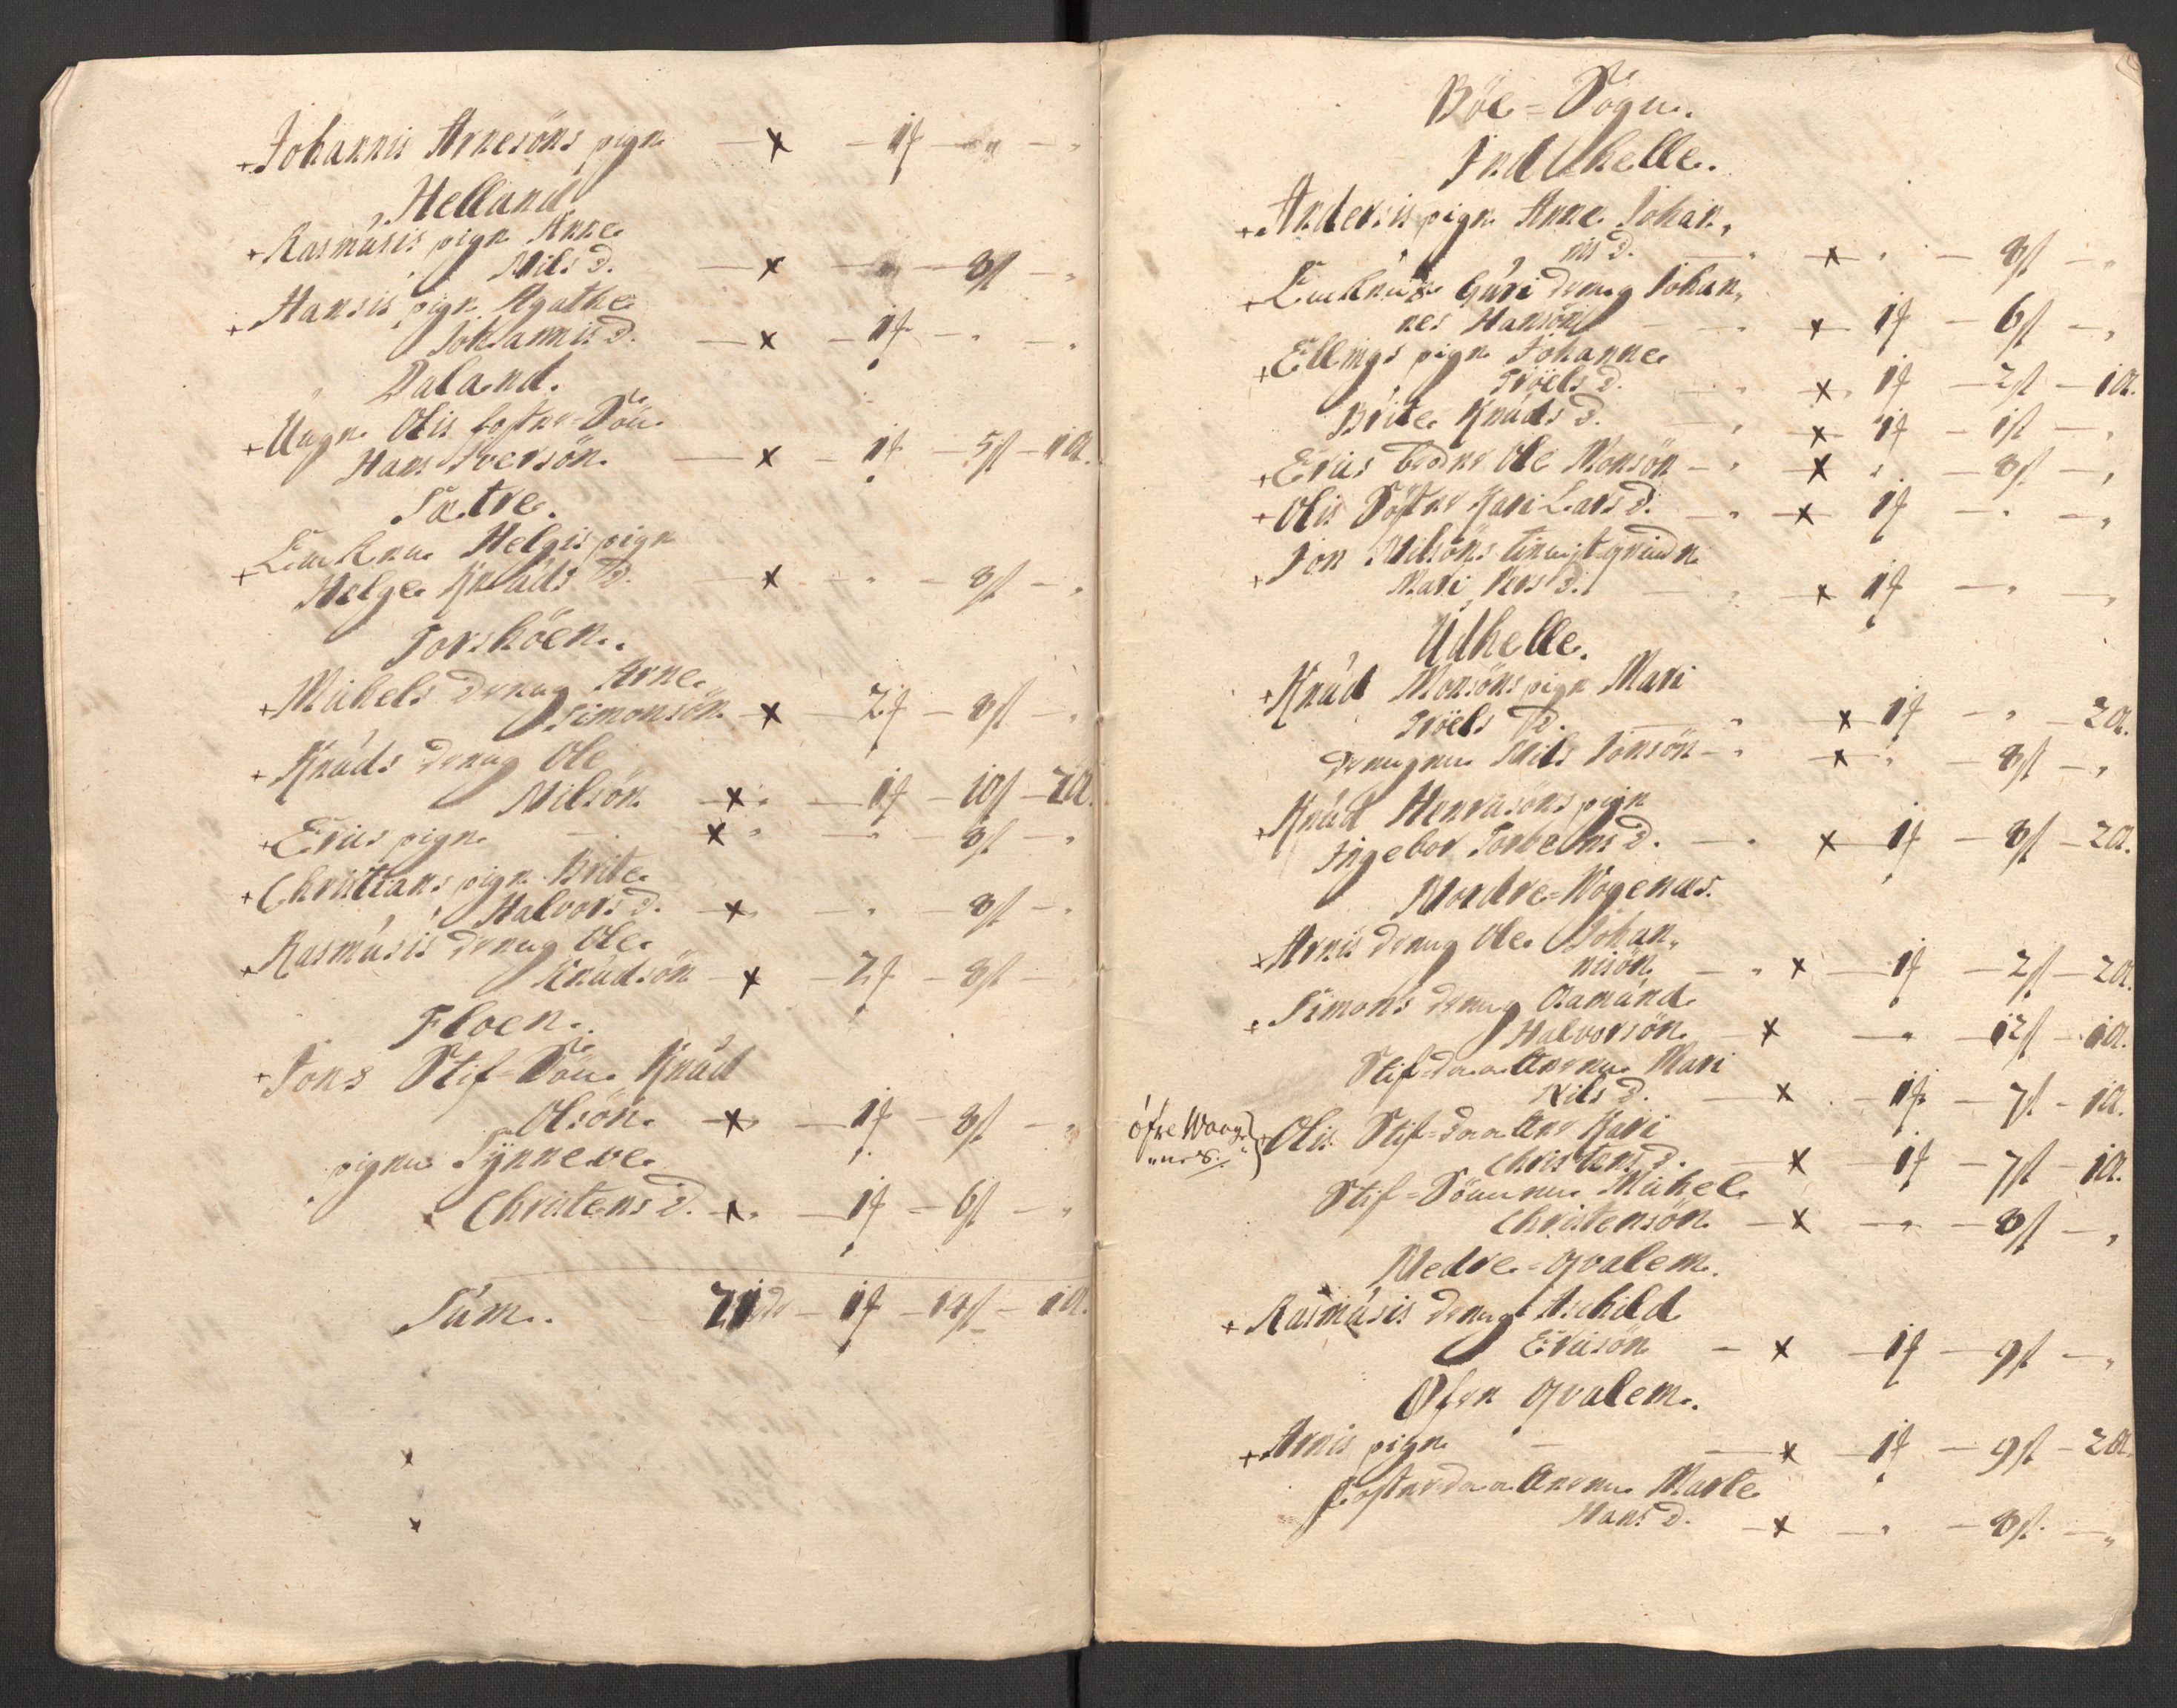 + Johannis Arnesöns pige — x — 1f — „ — „
Helland
+ Rasmusis pige Anne
Nils d. — x — — 8ſl — „
+ Hansis pige Agathe
Johannis d. — x — 1f — „ — „
Daland.
+ Unge Olis foster-Sön
Hans Iversön. — x — 1f — 5ſl — 1a.
Sætre.
+ Enkens Helgis pige
Helge Knuds d. — x — „ — 8ſl — „
Torsköen.
+ Mickels dreng Arne
Simonsön — x — 2f — 8ſl — „
+ Knuds dreng Ole
Nilsön — x „ — 1f — 10ſl — 2a.
+ Erics pige — x „ — „ — 8ſl — „
+ Christians pige Brite
Halvors d. — x — „ — 8ſl — „
+ Rasmusis dreng Ole
Knudsön — x — 2f — 8ſl —
Floen.
+ Jons Stif-Sön Knud
Olsön. — x — 1f — 8ſl — „
pigen Synneve
Christens d. — x „ — 1f — 6ſl — „
Sum. — 21 dr — 1f — 14ſl — 1a.
x
x
Böe-Sogn.
Indhelle.
+ Andersis pige Anne Johan,
nis d. — „ x „ — 8ſl — „
+ Guri dreng Johan,
nes Hansön — „ x 1f — 6ſl — „
+ Ellings pige Johanne
Tröels d. — „ x 1f — 2ſl — 1a.
Brite Knuds d. — „ x 1f — 1ſl — „
+ Erics broder Ole Monsön — „ x „ — 8ſl — „
+ Olis Söster Kari Lars d. — „ x 1f — „ — „
+ Jon Nilsöns
Mari d. — „ x 1f — „ — „
Udhelle.
+ Knud Monsöns pige Mari
Tröels d. — „ x 1f — „ — 2a.
drengen Nils Jonsön — „ x „ — 8ſl — „
+ Knud Henricsöns pige
Ingebor Torbens d. — „ x 1f — 8ſl — 2a.
Nordre-Wogenæs.
+ Arnis dreng Ole Johan,
nisön — „ x — 1f — 2ſl — 2a.
+ Simons dreng Aamund
Halvorsön — x — „ — 12ſl — 1a.
Stif-daatteren Mari
Nils d. — x — 1f — 7ſl — 1a.
öfre Waage
„næs. } + Olis Stif-daatter Kari
Christens d. — x — 1f — 7ſl — 1a.
Stif-Sönnen Mickel
Christensön — x — „ — 8ſl — „
Nedre-qvalem.
+ Rasmusis dreng Aschild
Ericsön — x — 1f — 9ſl — „
Öfre qvalem.
+ Arnis pige — x — 1f — 9ſl — 2a.
fosterdaatteren Marte
Hans d. — x — „ — 8ſl — „